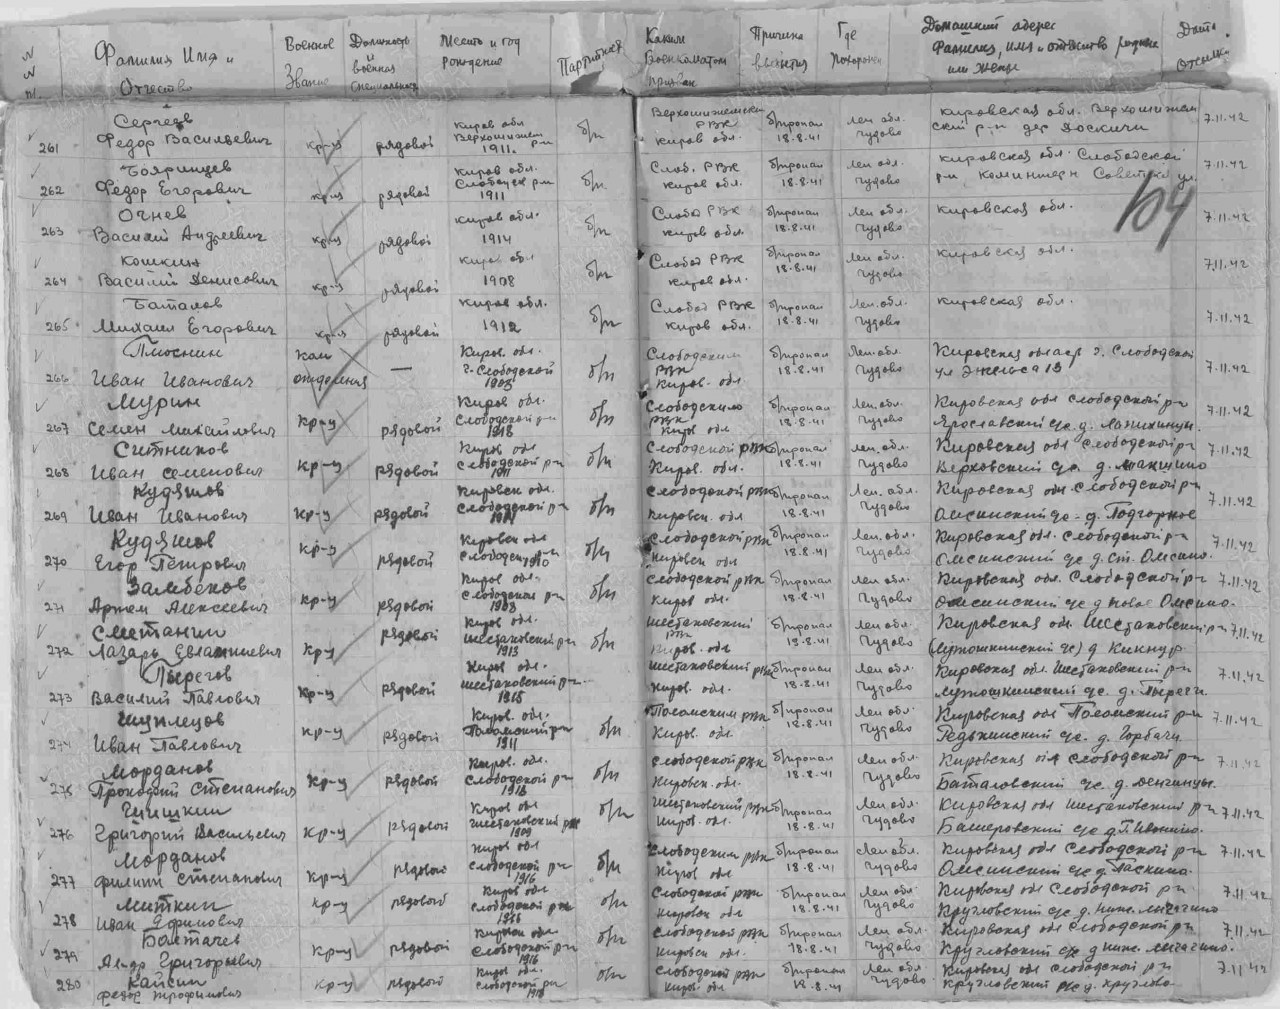 № № п/п Фамилия Имя и Отчество Военное Звание Должность и военная специальность Место и год рождение Партийная Каким Военкоматом призван Причина выбытия Где похоронен Домашний адрес Фамилия, имя и отчество родных или жены Дата
Сергеев Киров обл Верхошижемский РВК б/пропал Лен. обл. Кировская обл. Верхошижем
261 Федор Васильевич кр-ц рядовой Верхошижем р-н 1911 б/п Киров обл. 18.8.41 Чудово ский р-н дер 7.11.42
Бояринцев Киров обл. Слоб. РВК б/пропал Лен обл. Кировская обл. Слободской
262 Федор Егорович кр-ц рядовой Слободск р-н 1911 б/п Киров обл. 18.8.41 Чудово р-н Коминтерн Советская ул. 7.11.42
104
Огнев Киров обл. Слобод РВК б/пропал Лен обл. Кировская обл.
263 Василий Андреевич кр-ц рядовой 1914 б/п Киров обл. 18.8.41 Чудово 7.11.42
Кошкин Киров обл Слобод РВК б/пропал Лен обл. Кировская обл.
264 Василий Денисович кр-ц рядовой 1908 б/п Киров обл. 18.8.41 Чудово 7.11.42
Баталов Киров обл. Слобод РВК б/пропал Лен. обл. Кировская обл.
265 Михаил Егорович кр-ц рядовой 1912 б/п Киров обл. 18.8.41 Чудово 7.11.42
Плюснин Ком Киров. обл. Слободским б/пропал Лен. обл. Кировская область г. Слободской
266 Иван Иванович отделения — г. Слободской 1905 б/п РВК Киров. обл 18.8.41 Чудово ул Энгельса 7.11.42
Мурин Киров обл. Слободским б/пропал Лен. обл. Кировская обл Слободской р-н
267 Семен Михайлович кр-ц рядовой Слободской р-н 1918 б/п РВК Киров обл 18.8.41 Чудово Ярославский с/с д. 7.11.42
Ситников Киров обл Слободской РВК б/пропал Лен. обл. Кировская обл Слободской р-н
268 Иван Семенович кр-ц рядовой Слободской р-н 1911 б/п Киров. обл. 18.8.41 Чудово Верховский с/с д. 7.11.42
Кудяшов Кировск обл. Слободской РВК б/пропал Лен. обл. Кировская обл Слободской р-н
269 Иван Иванович кр-ц рядовой Слободской р-н б/п Кировск. обл 18.8.41 Чудово Омсинский с/с д. Подгорное 7.11.42
Кудяшов Кировск обл Слободской РВК б/пропал Лен обл. Кировская обл. Слободской р-н
270 Егор Петрович кр-ц рядовой Слободской р-н 1910 б/п Кировск обл 18.8.41 Чудово Омсинский с/с д. Ст. Омсино. 7.11.42
Замбеков Киров обл. Слободской РВК б/пропал Лен обл. Кировская обл. Слободской р-н
271 Артем Алексеевич кр-ц рядовой Слободской р-н 1908 б/п Киров обл. 18.8.41 Чудово Омсинский с/с д Новое Омсино. 7.11.42
Сметанин Киров обл. Шестаковский б/пропал Лен обл. Кировская обл. Шестаковский р-н
272 Лазарь кр-ц рядовой Шестаковский р-н 1913 б/п РВК Киров. обл 18.8.41 Чудово с/с) д Кикнур. 7.11.42
Перегов Киров обл. Шестаковский РВК б/пропал Лен обл. Кировская обл Шестаковский р-н
273 Василий Павлович кр-ц рядовой Шестаковский р-н Киров. обл. 18.8.41 Чудово с/с. д. 7.11.42
Шуплецов Киров. обл. Поломским РВК б/пропал Лен обл. Кировская обл Поломский р-н
274 Иван Павлович кр-ц рядовой Поломский р-н 1911 б/п Киров. обл. 18.8.41 Чудово с/с. д. Горбачи 7.11.42
Морданов Киров. обл. Слободской РВК б/пропал Лен обл. Кировская обл Слободской р-н
275 Прокопий Степанович кр-ц рядовой Слободской р-н 1918 б/п Кировск. обл. 18.8.41 Чудово с/с д. 7.11.42
Чишкин Киров обл Шестаковский РВК б/пропал Лен обл. Кировская обл Шестаковский р-н
276 Григорий Васильевич кр-ц рядовой Шестаковский р-н 1909 б/п Киров. обл. 18.8.41 Чудово с/с д. 7.11.42
Морданов Киров обл Слободским РВК б/пропал Лен обл. Кировская обл Слободской р-н
277 Филипп Степанович кр-ц рядовой Слободской р-н 1916 б/п Киров обл 18.8.41 Чудово Омсинский с/с д 7.11.42
Миткин Киров обл Слободской РВК б/пропал Лен обл. Кировская обл Слободской р-н
278 Иван Ефимович кр-ц рядовой Слободской р-н б/п Кировск обл 18.8.41 Чудово Кругловский с/с д. 7.11.42
Балтачев Кировск обл. Слободской РВК б/пропал Лен обл. Кировская обл Слободской р-н
279 Ал-др Григорьевич кр-ц рядовой Слободской р-н 1916 б/п Кировск. обл. 18.8.41 Чудово Кругловский с/с д 7.11.42
Кайсин Киров обл. Слободской РВК б/пропал Лен обл. Кировская обл Слободской р-н
280 Федор Трофимович кр-ц рядовой Слободской р-н б/п Киров обл 18.8.41 Чудово Кругловский с/с д. Круглово 7.11.42